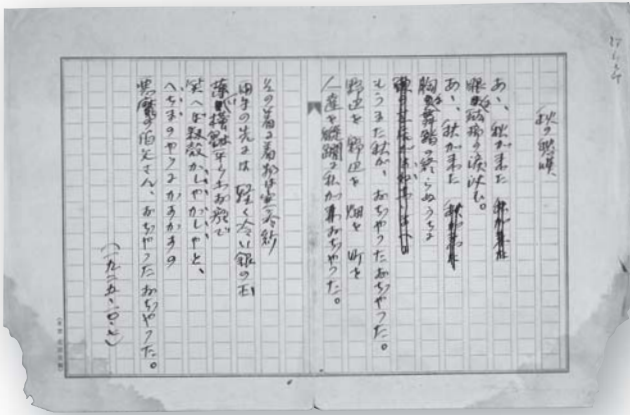 秋の愁嘆
あゝ、秋が来た
眼に琺瑯の涙沁む。
あゝ、秋が来た
胸に舞踏の終らぬうちに
もうまた秋が、おぢやつたおぢやつた。
野辺を 野辺を 畑を 町を
人達を蹂躪に秋がおぢやつた。
その着る着物は寒冷紗
両手の先には 軽く冷い銀の玉
薄い横皺平らなお顔で
笑へば籾殻かしやかしやと、
へちまのやうにかすかすの
悪魔の伯父さん、おぢやつたおぢやつた。
(一九二五・一〇・七)